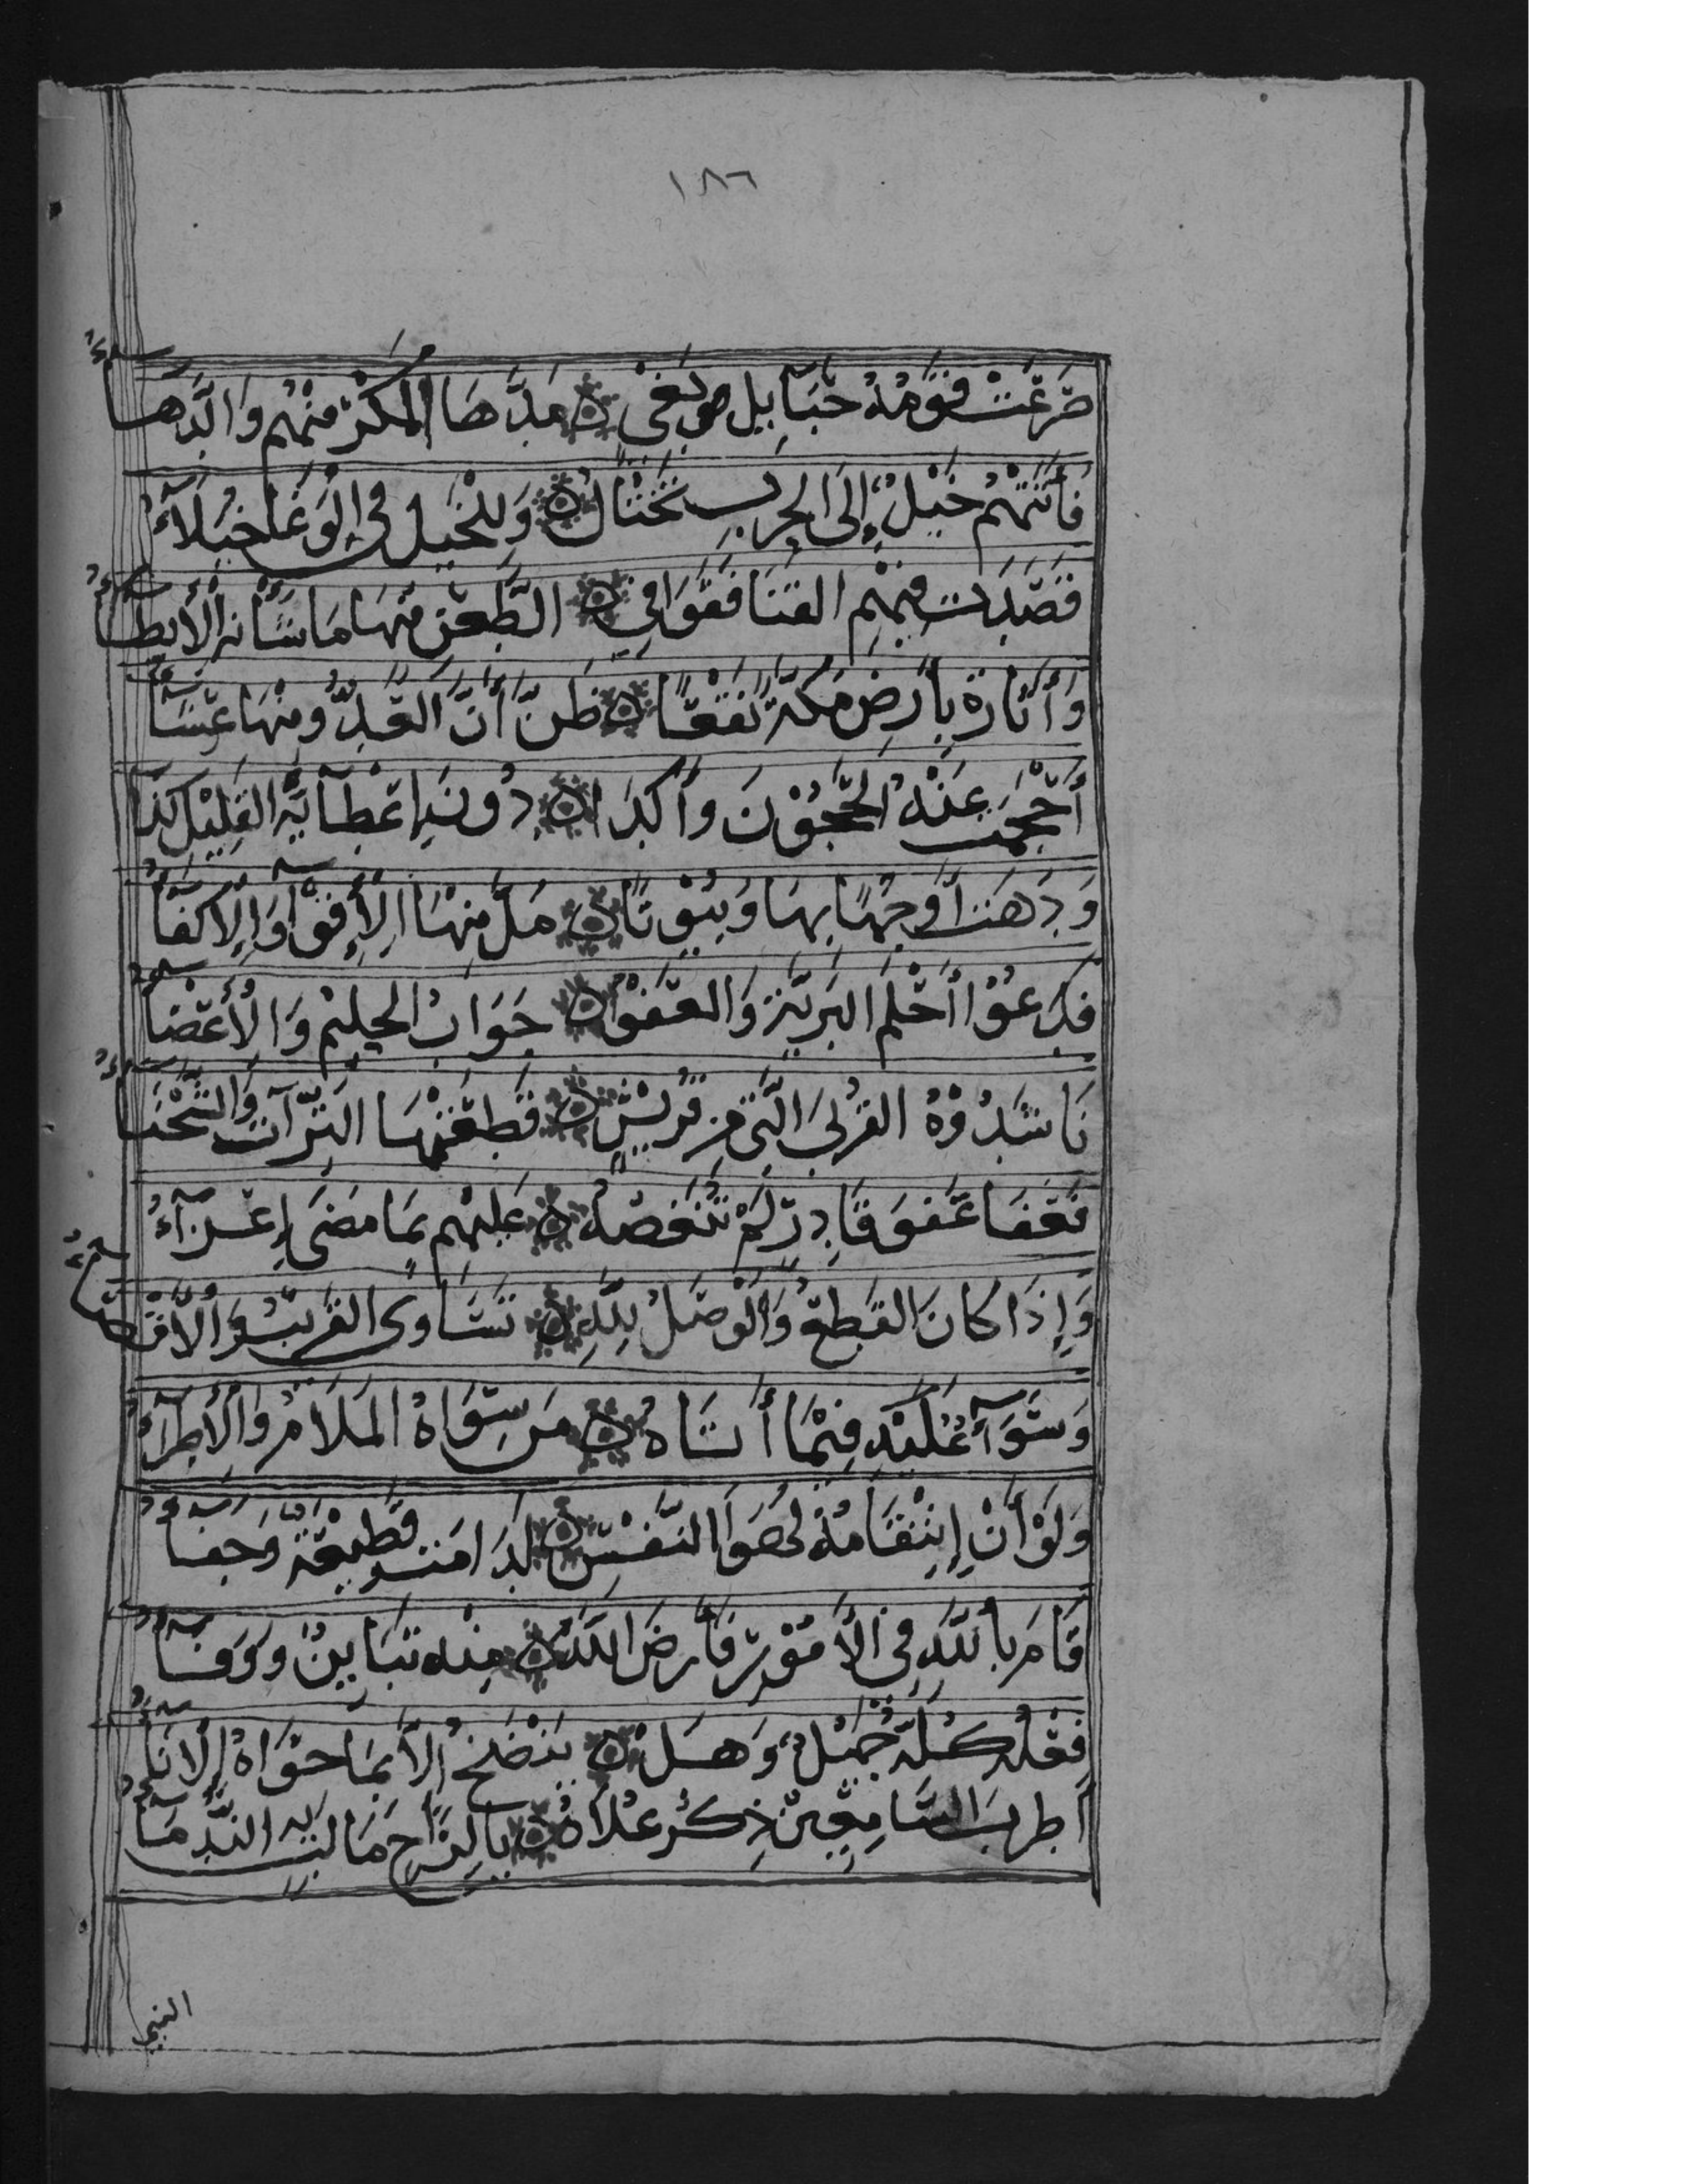 ١٨٦
صَرَعَتْ قَوْمَهُ حَبَآئِيلُ بَغْيٍ مَدَّهَا الْمَكْرُ مِنْهُمْ وَالدَّهَآءُ
فَأَتَتْهُمْ خَيْلٌ إِلَى الْحَرْبِ تَخْتَالُ وَلِلْخَيْلِ فِي الْوَغَا خُيَلَآءُ
قَصَدَتْ مِنْهُمُ الْقَنَا فَقَوَافِي الطَّعْنِ مِنْهَا مَا شَانَهَا الْأَيْطَآءُ
وَأَثَارَةْ بِأَرْضِ مَكَّةَ نَقْعًا ظَنَّ أَنَّ الْغَدُوَّ مِنْهَا عِشَآءُ
أَحْجَمَتْ عِنْدَهُ الْحَجُوْنَ وَأَكْدَا دُونَ إِعْطَآئِهِ الْقَلِيْلَ كَدَآءُ
وَدَهَتْ أَوْجُهًا بِهَا وَبُيُوْتًا مَلَّ مِنْهَا الْإِقْوَآءُ وَالْإِكْفَآءُ
فَدَعَوْا أَحْلَمَ الْبَرِيَّةِ وَالْعَفْوُ جَوَابُ الْحَلِيْمِ وَالْأَغْضَآءُ
نَاشَدُوْهُ الْقُرْبَى الَّتِي مِنْ قُرَيْشٍ قَطَعَتْهَا التِّرَاتُ وَالشَّحْنَآءُ
فَعَفَا عَفْوَ قَادِرٍ لَمْ تُنَغِّصْهُ عَلَيْهِمْ بِمَا مَضَى إِغْرَآءُ
وَإِذَا كَانَ الْقَطْعُ وَالْوَصْلُ لِلَّهِ تَسَاوَى الْقَرِيْبُ وَالْأَقْصَآءُ
وَسَوَآءٌ عَلَيْهِ فِيْمَا أَتَاهُ مَن سِوَاهُ الْمَلَامُ وَالْأَطْرَآءُ
وَلَوْ أَنَّ إِنْتِقَامَهُ لِهَوَا النَّفْسِ لَدَامَتْ قَطِيْعَةٌ وَجَفَآءُ
قَامَ بِاللَّهِ فِي الْأُمُوْرِ فَأَرْضَ اللَّهَ مِنْهُ تَبَايُنٌ وَوَفَآءُ
فِعْلُهُ كُلُّهُ جَمِيْلٌ وَهَلْ يَنْضَحُ إِلَّا بِمَا حَوَاهُ الْإِنَآءُ
أَطْرَبَ السَّامِعِيْنَ ذِكْرُ عُلَاهُ يَا لِرَاحٍ مَالَتْ بِهِ النُّدَمَآءُ
النبي